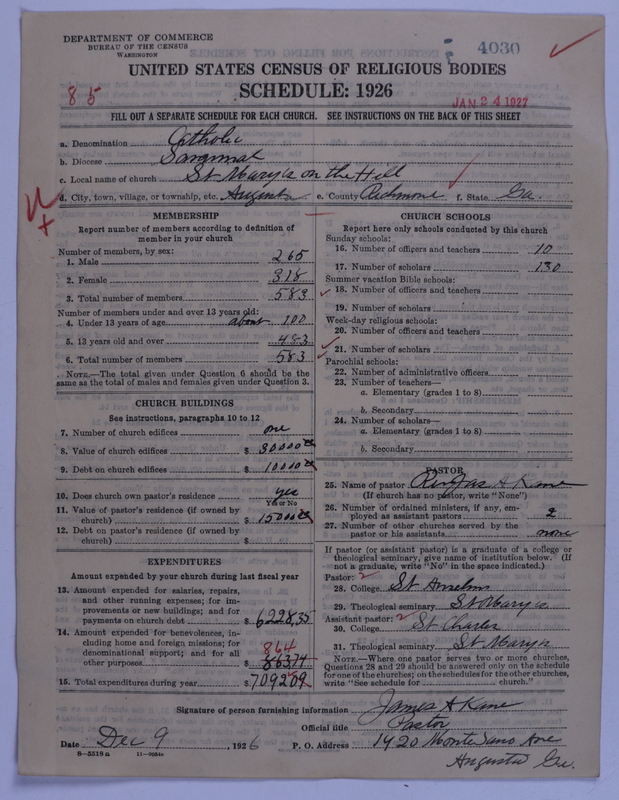 DEPARTMENT OF COMMERCE
BUREAU OF THE CENSUS
WASHINGTON
4030
UNITED STATES CENSUS OF RELIGIOUS BODIES
SCHEDULE: 1926
85
JAN 24 1927
FILL OUT A SEPARATE SCHEDULE FOR EACH CHURCH. SEE INSTRUCTIONS ON THE BACK OF THIS SHEET
a. Denomination Catholic
b. Diocese Savannah
c. Local name of church St Marys on the Hill
d. City, town, village, or township, etc. Augusta e. County Richmond f. State Ga.
MEMBERSHIP
Report number of members according to definition of member in your church
Number of members, by sex:
1. Male 265
2. Female 318
3. Total number of members 583
Number of members under and over 13 years old:
4. Under 13 years of age about 100
5. 13 years old and over 483
6. Total number of members 583
NOTE.—The total given under Question 6 should be the
same as the total of males and females given under Question 3.
CHURCH BUILDINGS
See instructions, paragraphs 10 to 12
7. Number of church edifices one
8. Value of church edifices $ 80000 00
9. Debt on church edifices $ 10000 00
10. Does church own pastor's residence yes
Yes or No
11. Value of pastor's residence (if owned by
church) $ 15000 00
12. Debt on pastor's residence (if owned by
church) $
EXPENDITURES
Amount expended by your church during last fiscal year
13. Amount expended for salaries, repairs,
and other running expenses; for im-
provements or new buildings; and for
payments on church debt $ 6228,35
14. Amount expended for benevolences, in-
cluding home and foreign missions; for
denominational support; and for all
864
other purposes 863,74
15. Total expenditures during year $ 709209
CHURCH SCHOOLS
Report here only schools conducted by this church
Sunday schools:
16. Number of officers and teachers 10
17. Number of scholars 130
Summer vacation Bible schools:
18. Number of officers and teachers
19. Number of scholars
Week-day religious schools:
20. Number of officers and teachers
21. Number of scholars
Parochial schools:
22. Number of administrative officers
23. Number of teachers—
a. Elementary (grades 1 to 8)
b. Secondary
24. Number of scholars—
a. Elementary (grades 1 to 8)
b. Secondary
PASTOR
25. Name of pastor Rev Jas A Kane
(If church has no pastor, write "None")
26. Number of ordained ministers, if any, em-
ployed as assistant pastors 2
27. Number of other churches served by the
pastor or his assistants none
If pastor (or assistant pastor) is a graduate of a college or
theological seminary, give name of institution below. (If
not a graduate, write "No" in the space indicated.)
Pastor: 2
28. College St Anselms
29. Theological seminary St Marys
Assistant pastor: 2
30. College St Charles
31. Theological seminary St Marys
NOTE.—Where one pastor serves two or more churches,
Questions 28 and 29 should be answered only on the schedule
for one of the churches; on the schedules for the other churches,
write "See schedule for church."
Signature of person furnishing information James A Kane
Official title Pastor
Date Dec 9, 1926 P. O. Address 1420 Monte Sano Ave
Augusta Ga.
8—5518a